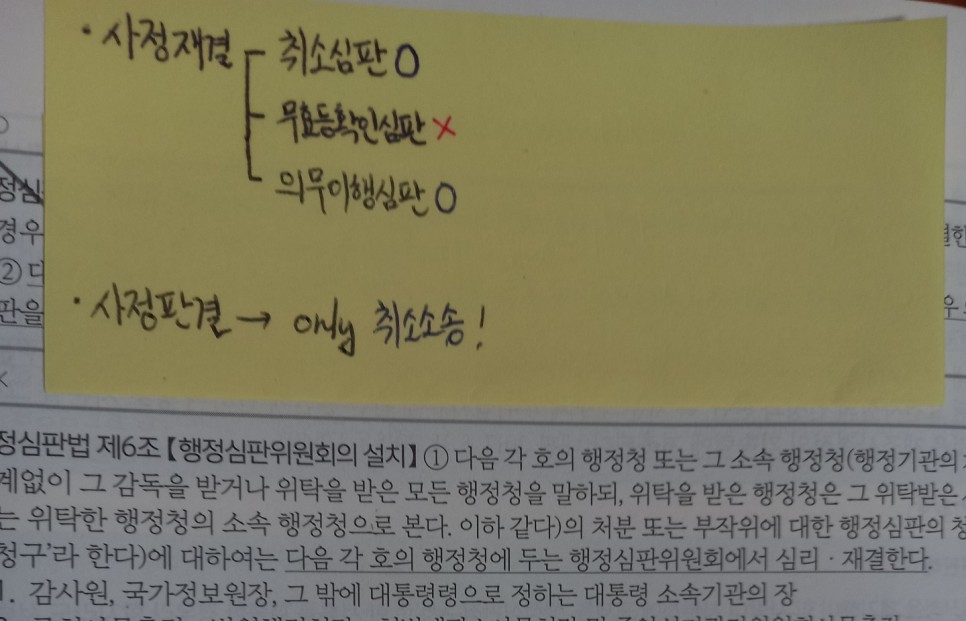 · 사정재결 취소심판 O
무효등확인심판 ×
의무이행심판 O
· 사정판결 → only 취소소송!
정심
경우
② 다
판을
정심판법 제6조【행정심판위원회의 설치】① 다음 각 호의 행정청 또는 그 소속 행정청(행정기관의
계없이 그 감독을 받거나 위탁을 받은 모든 행정청을 말하되, 위탁을 받은 행정청은 그 위탁받은
는 위탁한 행정청의 소속 행정청으로 본다. 이하 같다)의 처분 또는 부작위에 대한 행정심판의 청
청구'라 한다)에 대하여는 다음 각 호의 행정청에 두는 행정심판위원회에서 심리 · 재결한다.
1. 감사원, 국가정보원장, 그 밖에 대통령령으로 정하는 대통령 소속기관의 장